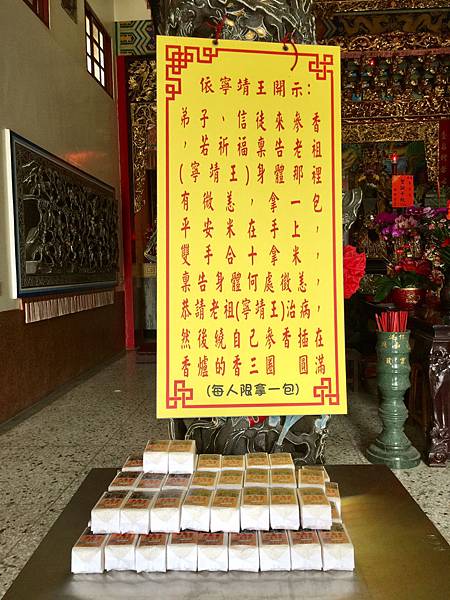 依寧靖王開示：
弟子、信徒來參香
，若祈福稟告老祖
(寧靖王)身體那裡
有微恙，拿一包
平安米，在手上，
雙手合十拿米，
稟告身體何處微恙，
恭請老祖(寧靖王)治病，
然後繞自己參香插在
香爐的香三圈　圓滿
(每人限拿一包)